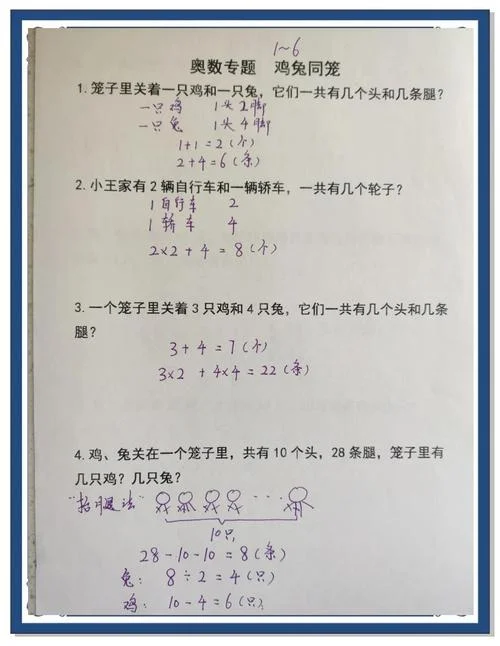 1~6
奥数专题 鸡兔同笼
1. 笼子里关着一只鸡和一只兔，它们一共有几个头和几条腿？
一只鸡 1头2脚
一只兔 1头4脚
1+1=2(个)
2+4=6(条)
2. 小王家有2辆自行车和一辆轿车，一共有几个轮子？
1自行车 2
1轿车 4
2×2+4=8(个)
3. 一个笼子里关着3只鸡和4只兔，它们一共有几个头和几条
腿？
3+4=7(个)
3×2+4×4=22(条)
4. 鸡、兔关在一个笼子里，共有10个头，28条腿，笼子里有
几只鸡？几只兔？
"抬腿法"
10只
28-10-10=8(条)
兔: 8÷2=4(只)
鸡: 10-4=6(只)